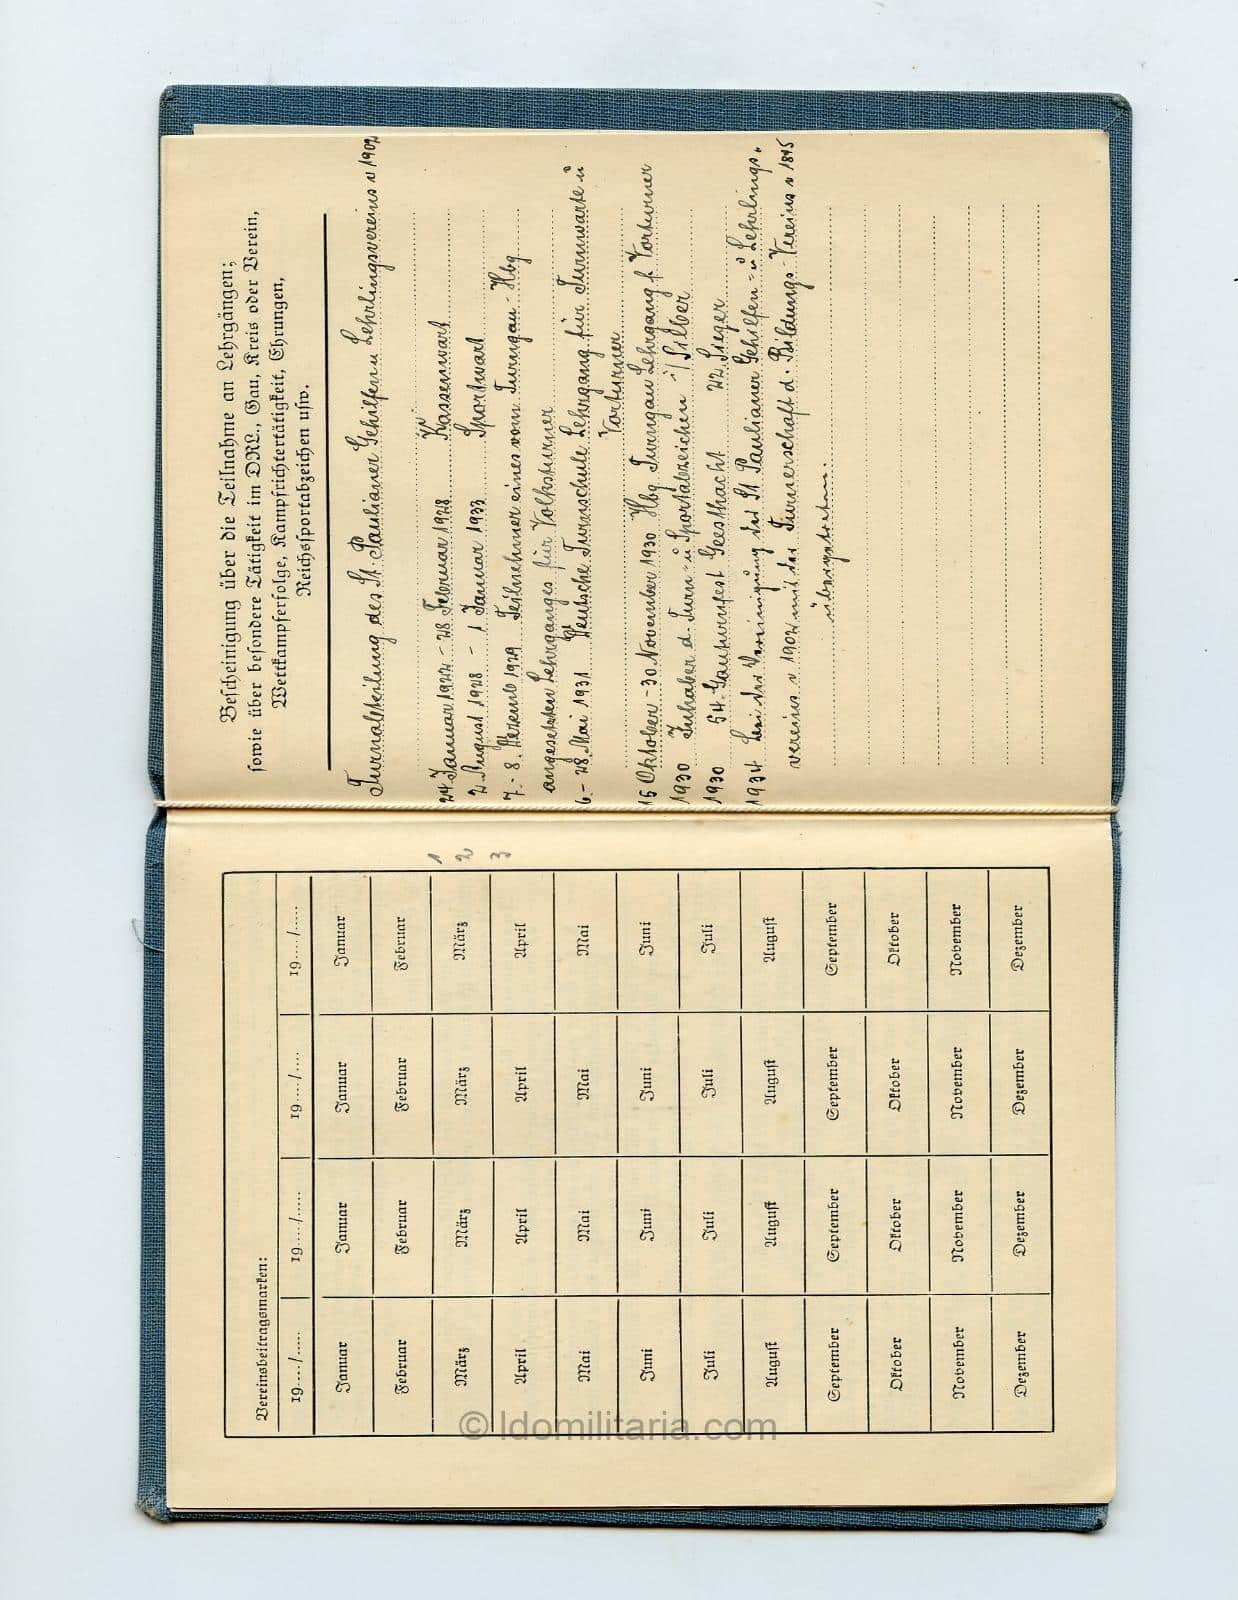 Vereinsbeitragsmarken:
19..../..... 19..../..... 19..../.... 19..../.....
Januar Januar Januar Januar
Februar Februar Februar Februar
März März März März
April April April April
Mai Mai Mai Mai
Juni Juni Juni Juni
Juli Juli Juli Juli
August August August August
September September September September
Oktober Oktober Oktober Oktober
November November November November
Dezember Dezember Dezember Dezember
1
2
3
Bescheinigung über die Teilnahme an Lehrgängen;
sowie über besondere Tätigkeit im DRL., Gau, Kreis oder Verein,
Wettkampferfolge, Kampfrichtertätigkeit, Ehrungen,
Reichssportabzeichen usw.
Turnabteilung des St. Paulianer Gehilfen u Lehrlingsvereins v 1902
24. Januar 1922 - 28 Februar 1928 Kassenwart
2. August 1928 - 1 Januar 1933 Sportwart
7. - 8. Dezemb 1929 Teilnehmer eines vom Turngau - Hbg
angesetzten Lehrganges für Volksturner
6. - 28. Mai 1931 Deutsche Turnschule Lehrgang für Turnwarte u
Vorturner
15 Oktober - 30 November 1930 Hbg Turngau Lehrgang f. Vorturner
1930 Inhaber d. Turn- u Sportabzeichen i/ Silber
1930 54. Gauturnfest Geesthacht 22. Sieger
1934 bei der Vereinigung des St Paulianer Gehilfen- u Lehrlings-
vereins v 1902 mit der Turnerschaft d. Bildungs-Vereins v 1845
übergetreten.
© Idomilitaria.com